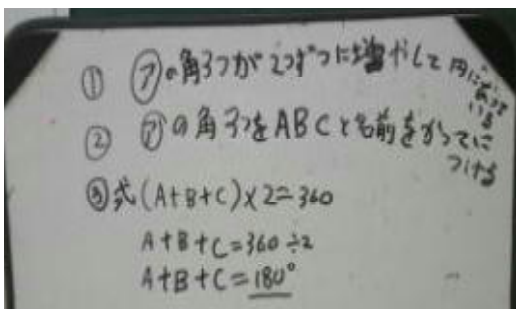 ① ㋐の角3つが2つずつに増やして円になっている
② ㋐の角3つをABCと名前をかってにつける
③式(A+B+C)×2=360
A+B+C=360÷2
A+B+C=180°